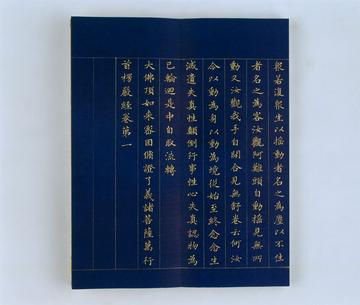 眾若復眾生以搖動者名之為塵以不住
者名之為客汝觀阿難頭自動搖見無所
動又汝觀我手自開合見無舒卷云何汝
今以動為身以動為境從始至終念念生
滅遺失真性顛倒行事性心失真認物為
己輪迴是中自取流轉
大佛頂如來密因脩證了義諸菩薩萬行
首楞嚴經卷第一